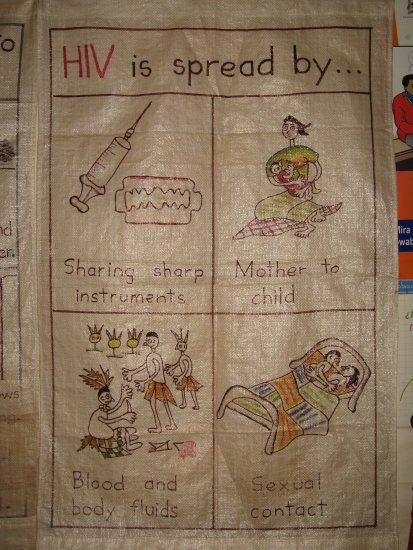 HIV is spread by...
Sharing sharp
instruments
Mother to
child
Blood and
body fluids
Sexual
contact
To
nd
er.
ows
Mira
owab